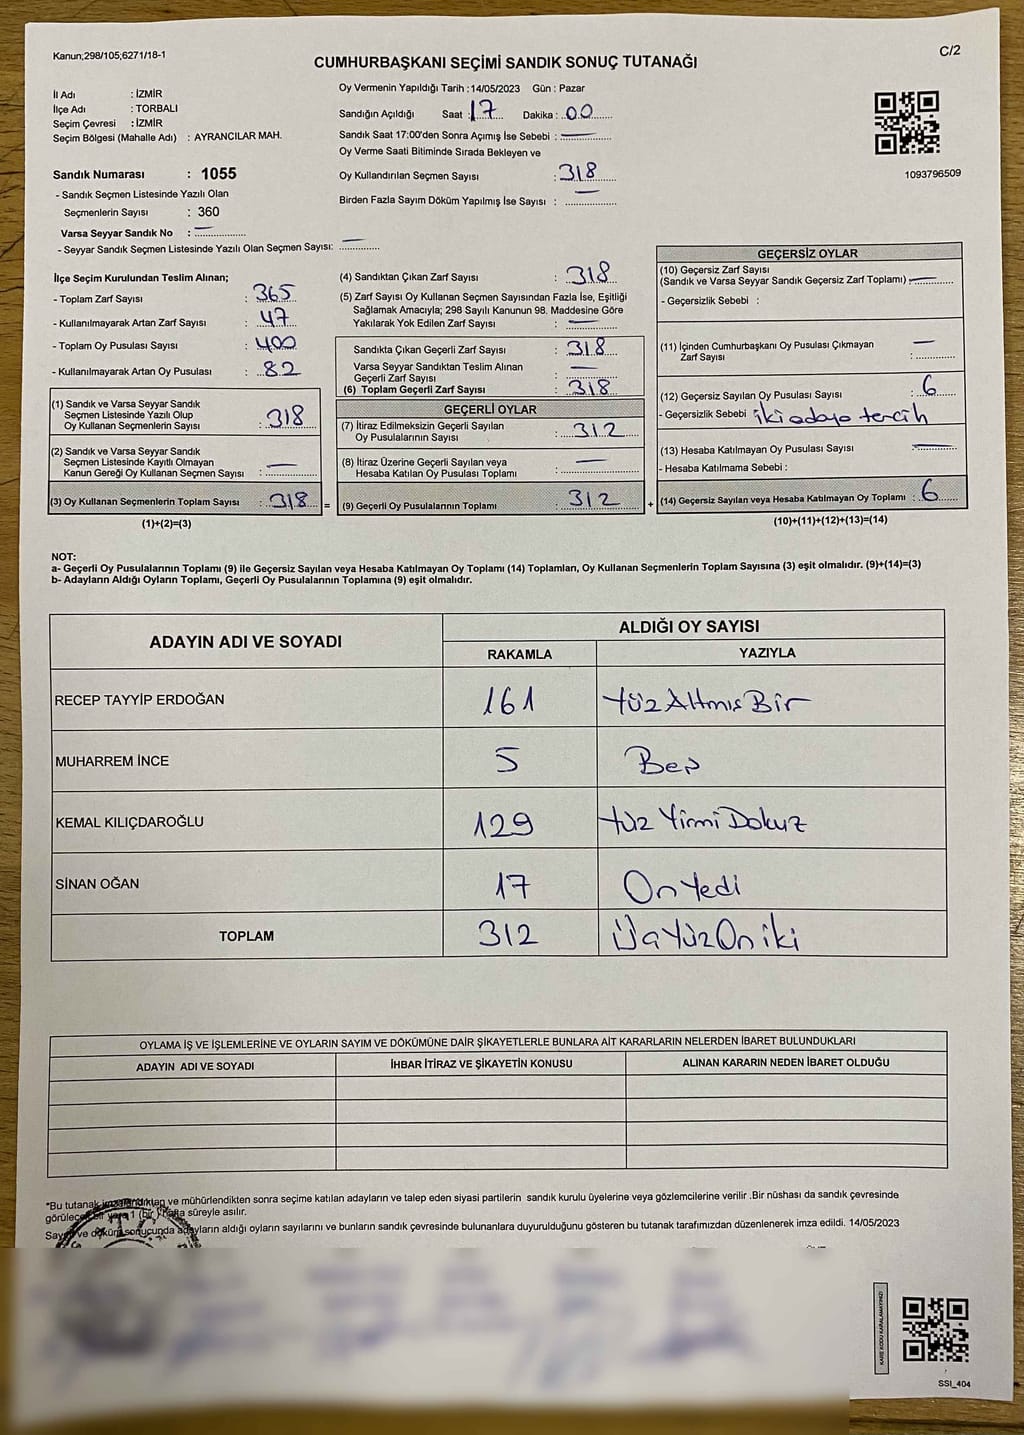 Kanun;298/105;6271/18-1
C/2
CUMHURBAŞKANI SEÇİMİ SANDIK SONUÇ TUTANAĞI
İl Adı : İZMİR
İlçe Adı : TORBALI
Seçim Çevresi : İZMİR
Seçim Bölgesi (Mahalle Adı) : AYRANCILAR MAH.
Sandık Numarası : 1055
- Sandık Seçmen Listesinde Yazılı Olan
Seçmenlerin Sayısı : 360
Varsa Seyyar Sandık No :
- Seyyar Sandık Seçmen Listesinde Yazılı Olan Seçmen Sayısı:
Oy Vermenin Yapıldığı Tarih : 14/05/2023 Gün : Pazar
Sandığın Açıldığı Saat : 17 Dakika : 00
Sandık Saat 17:00'den Sonra Açımış İse Sebebi :
Oy Verme Saati Bitiminde Sırada Bekleyen ve
Oy Kullandırılan Seçmen Sayısı : 318
Birden Fazla Sayım Döküm Yapılmış İse Sayısı :
1093796509
İlçe Seçim Kurulundan Teslim Alınan;
- Toplam Zarf Sayısı : 365
- Kullanılmayarak Artan Zarf Sayısı : 47
- Toplam Oy Pusulası Sayısı : 400
- Kullanılmayarak Artan Oy Pusulası : 82
(1) Sandık ve Varsa Seyyar Sandık
Seçmen Listesinde Yazılı Olup
Oy Kullanan Seçmenlerin Sayısı : 318
(2) Sandık ve Varsa Seyyar Sandık
Seçmen Listesinde Kayıtlı Olmayan
Kanun Gereği Oy Kullanan Seçmen Sayısı :
(3) Oy Kullanan Seçmenlerin Toplam Sayısı : 318 =
(1)+(2)=(3)
(4) Sandıktan Çıkan Zarf Sayısı : 318
(5) Zarf Sayısı Oy Kullanan Seçmen Sayısından Fazla İse, Eşitliği
Sağlamak Amacıyla; 298 Sayılı Kanunun 98. Maddesine Göre
Yakılarak Yok Edilen Zarf Sayısı :
Sandıkta Çıkan Geçerli Zarf Sayısı : 318
Varsa Seyyar Sandıktan Teslim Alınan
Geçerli Zarf Sayısı :
(6) Toplam Geçerli Zarf Sayısı : 318
GEÇERLİ OYLAR
(7) İtiraz Edilmeksizin Geçerli Sayılan
Oy Pusulalarının Sayısı : 312
(8) İtiraz Üzerine Geçerli Sayılan veya
Hesaba Katılan Oy Pusulası Toplamı :
(9) Geçerli Oy Pusulalarının Toplamı : 312 +
GEÇERSİZ OYLAR
(10) Geçersiz Zarf Sayısı
(Sandık ve Varsa Seyyar Sandık Geçersiz Zarf Toplamı)
- Geçersizlik Sebebi :
(11) İçinden Cumhurbaşkanı Oy Pusulası Çıkmayan
Zarf Sayısı :
(12) Geçersiz Sayılan Oy Pusulası Sayısı : 6
- Geçersizlik Sebebi : iki adaya tercih
(13) Hesaba Katılmayan Oy Pusulası Sayısı :
- Hesaba Katılmama Sebebi :
(14) Geçersiz Sayılan veya Hesaba Katılmayan Oy Toplamı : 6
(10)+(11)+(12)+(13)=(14)
NOT:
a- Geçerli Oy Pusulalarının Toplamı (9) ile Geçersiz Sayılan veya Hesaba Katılmayan Oy Toplamı (14) Toplamları, Oy Kullanan Seçmenlerin Toplam Sayısına (3) eşit olmalıdır. (9)+(14)=(3)
b- Adayların Aldığı Oyların Toplamı, Geçerli Oy Pusulalarının Toplamına (9) eşit olmalıdır.
ADAYIN ADI VE SOYADI
ALDIĞI OY SAYISI
RAKAMLA YAZIYLA
RECEP TAYYİP ERDOĞAN 161 YüzAltmışBir
MUHARREM İNCE 5 Beş
KEMAL KILIÇDAROĞLU 129 Yüz Yirmi Dokuz
SİNAN OĞAN 17 OnYedi
TOPLAM 312 ÜçYüzOniki
OYLAMA İŞ VE İŞLEMLERİNE VE OYLARIN SAYIM VE DÖKÜMÜNE DAİR ŞİKAYETLERLE BUNLARA AİT KARARLARIN NELERDEN İBARET BULUNDUKLARI
ADAYIN ADI VE SOYADI İHBAR İTİRAZ VE ŞİKAYETİN KONUSU ALINAN KARARIN NEDEN İBARET OLDUĞU
*Bu tutanak imzalandıktan ve mühürlendikten sonra seçime katılan adayların ve talep eden siyasi partilerin sandık kurulu üyelerine veya gözlemcilerine verilir .Bir nüshası da sandık çevresinde
görülecek bir yere 1 (bir) hafta süreyle asılır.
Sayım ve döküm sonucunda adayların aldığı oyların sayılarını ve bunların sandık çevresinde bulunanlara duyurulduğunu gösteren bu tutanak tarafımızdan düzenlenerek imza edildi. 14/05/2023
KARE KODU KARALAMAYINIZ!
SSI_404